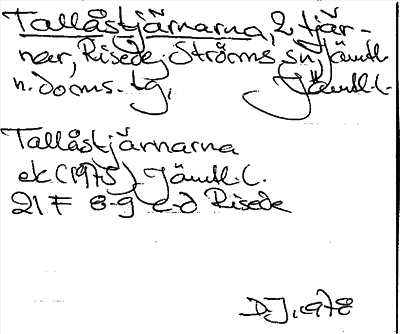 Tallåstjärnarna, 2 tjär-
nar, Risede, Ströms sn, Jämtl.
n. doms. tg, Jämtl. l.
Tallåstjärnarna
ek (1975) Jämtl. l.
21 F 8-9 c-d Risede
D.J. 1978